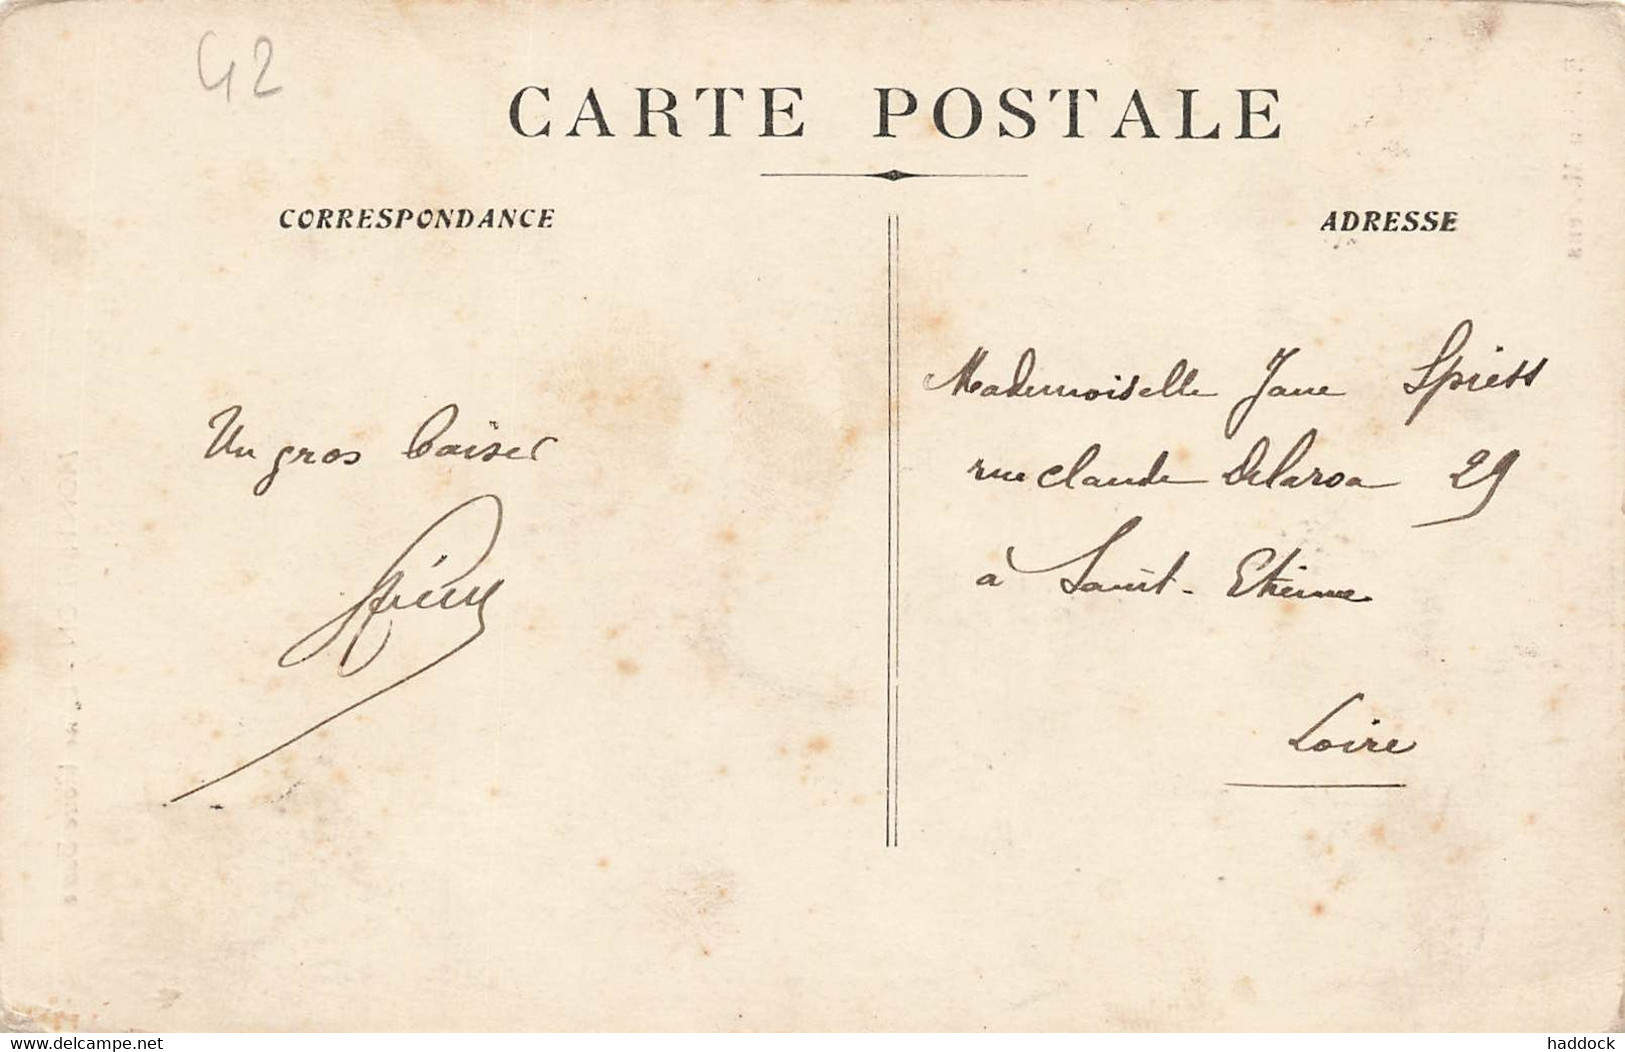 42
CARTE POSTALE
CORRESPONDANCE
ADRESSE
Un gros baiser
Mademoiselle Jane Spiess
rue Claude Delaroa 29
à Saint-Etienne
Loire
www.delcampe.net
haddock